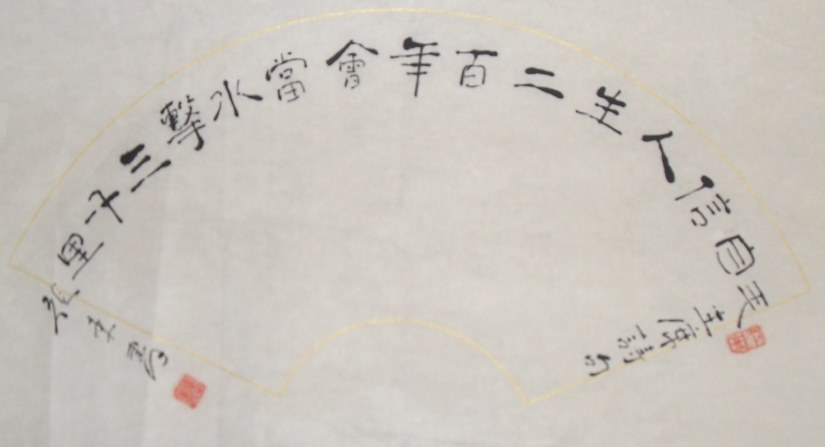 自信人生二百年會當水擊三千里
毛主席詩句